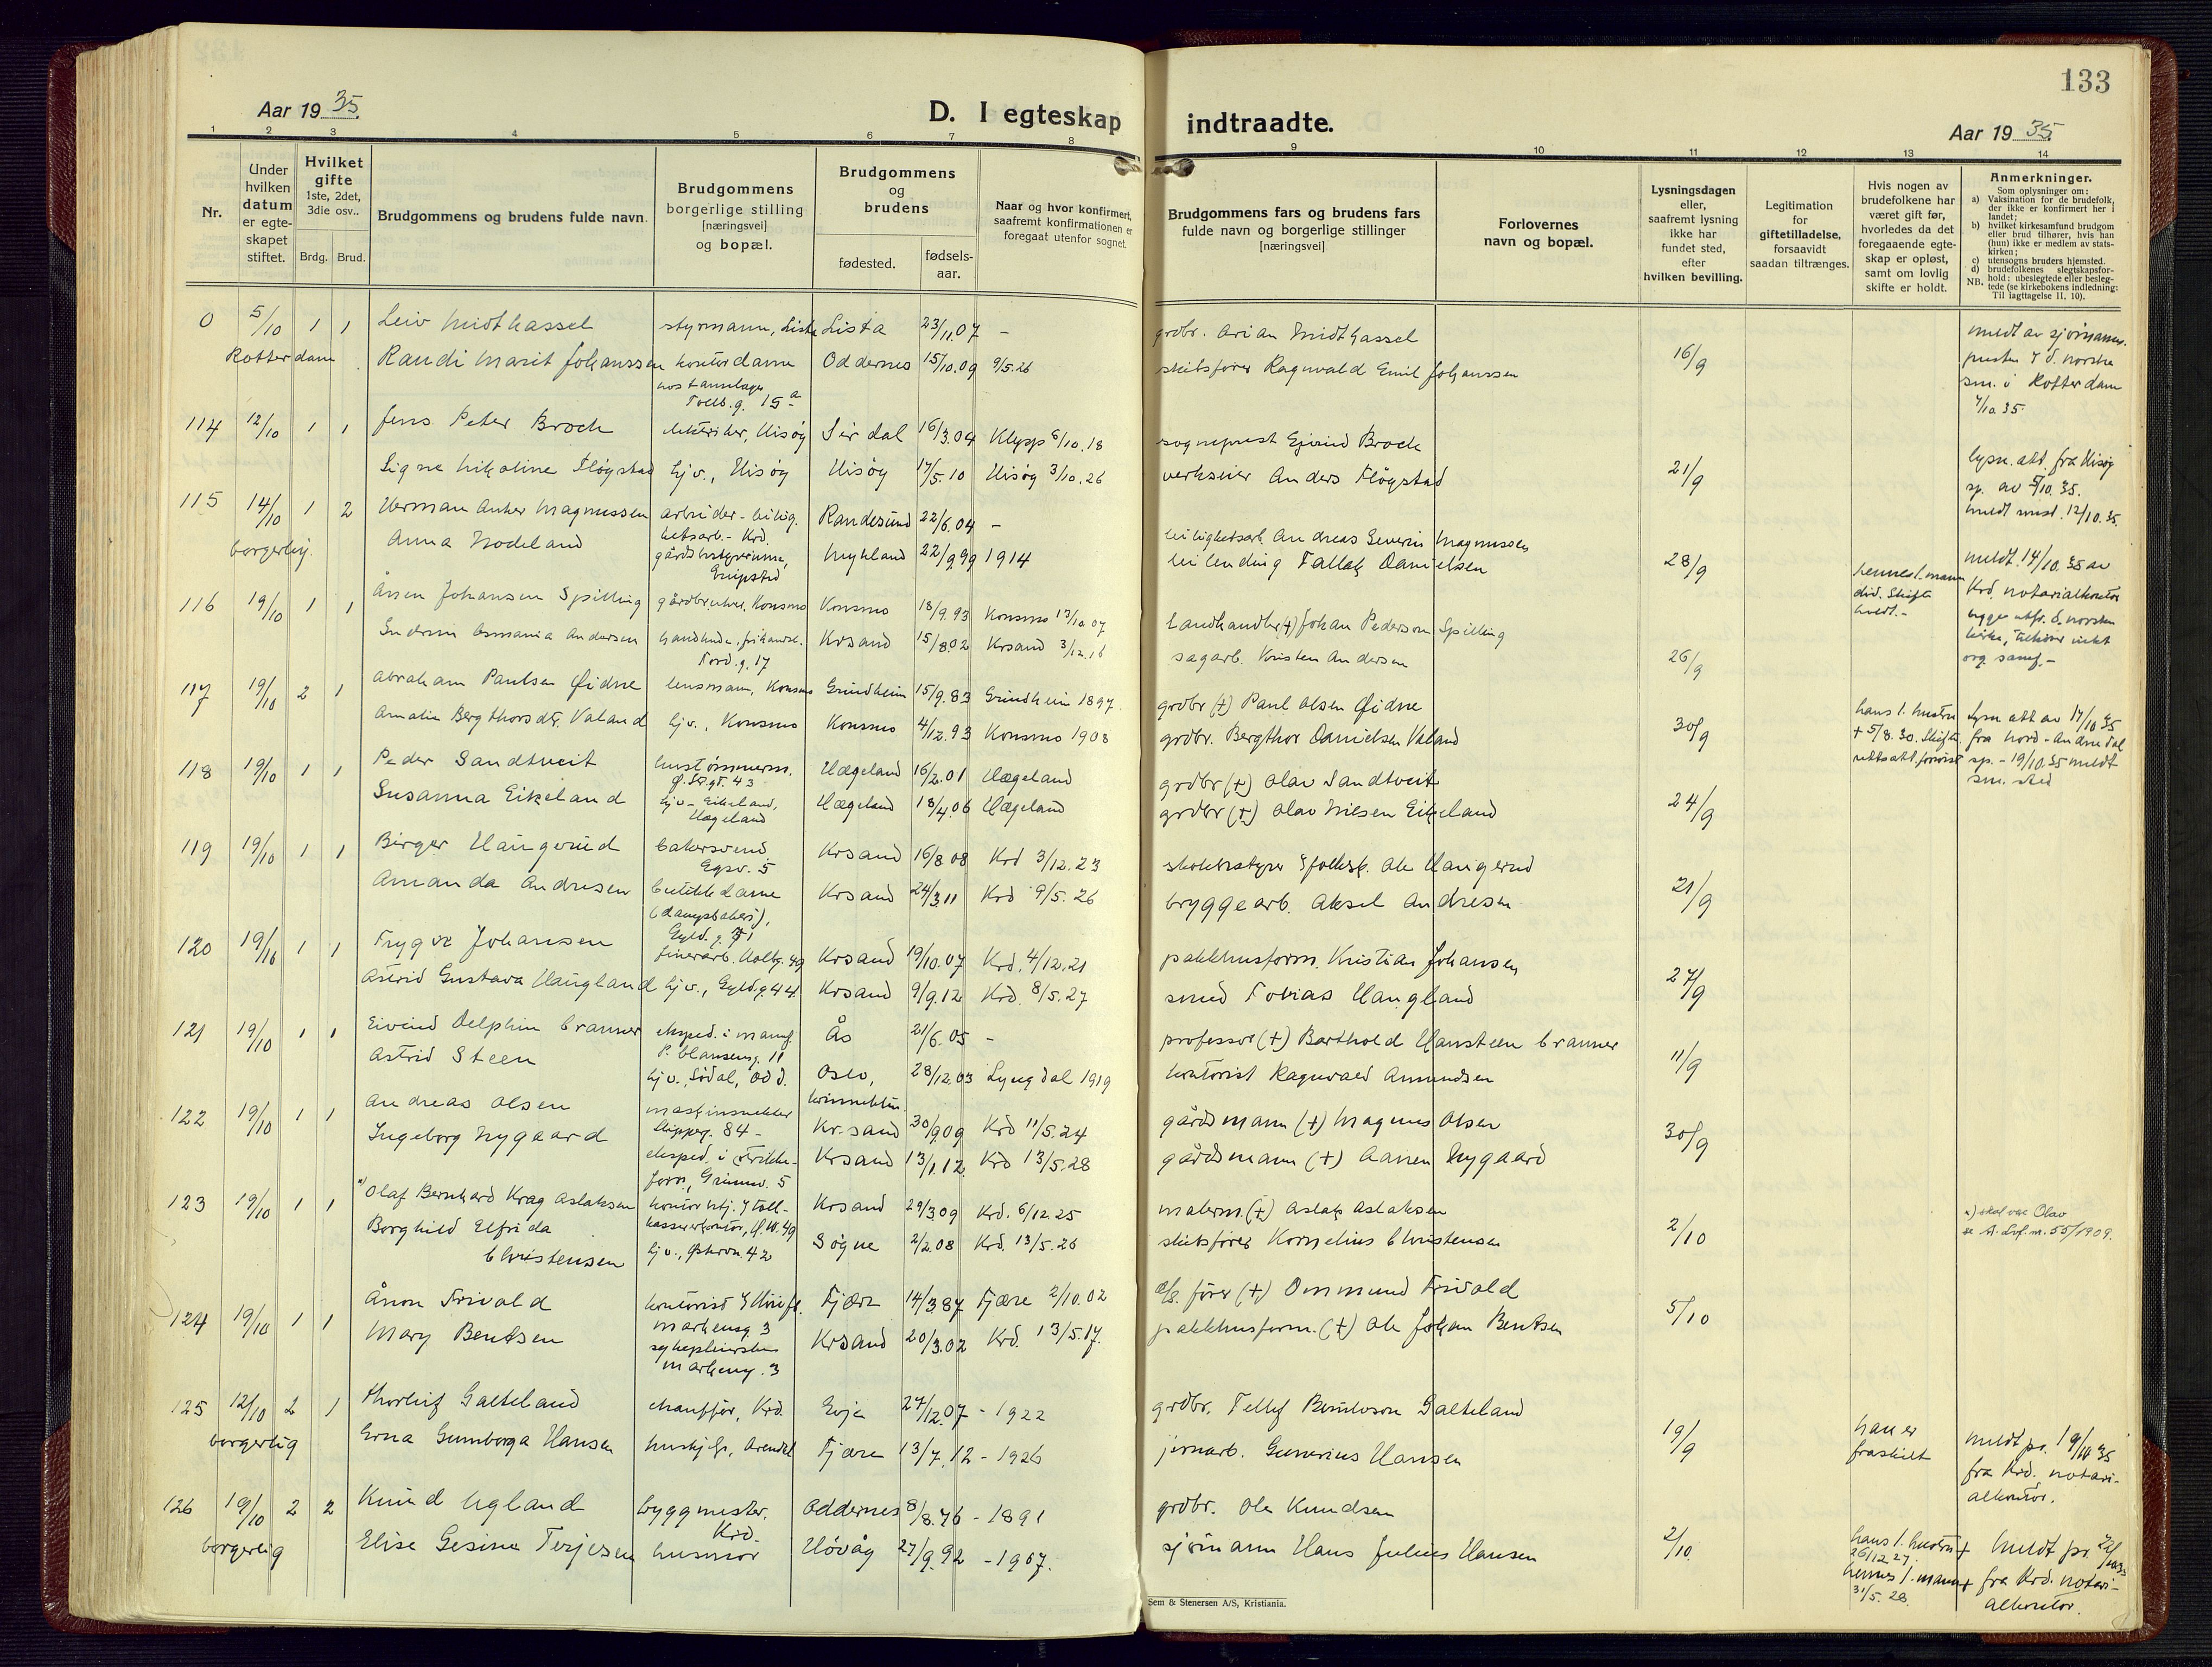 133
Aar 19 35.
D. I egteskap indtraadte.
Aar 19 35.
1 2 3 4 5 6 7 8 9 10 11 12 13 14
Nr.
Under hvilken datum er egteskapet stiftet.
Hvilket gifte 1ste, 2det, 3die osv..
Brdg. Brud.
Brudgommens og brudens fulde navn.
Brudgommens borgerlige stilling [næringsvei] og bopæl.
Brudgommens og brudens
fødested.
fødsels-aar.
Naar og hvor konfirmert, saafremt konfirmationen er foregaat utenfor sognet.
Brudgommens fars og brudens fars fulde navn og borgerlige stillinger [næringsvei]
Forlovernes navn og bopæl.
Lysningsdagen eller, saafremt lysning ikke har fundet sted, efter hvilken bevilling.
Legitimation for giftetilladelse, forsaavidt saadan tiltrænges.
Hvis nogen av brudefolkene har været gift før, hvorledes da det foregaaende egteskap er opløst, samt om lovlig skifte er holdt.
Anmerkninger.
Som oplysninger om:
a) Vaksination for de brudefolk, der ikke er konfirmert her i landet;
b) hvilket kirkesamfund brudgom eller brud tilhører, hvis han (hun) ikke er medlem av statskirken;
c) utensogns bruders hjemsted.
d) brudefolkenes slegtskapsforhold: ubeslegtede eller beslegtede (se kirkebokens indledning: Til iagttagelse II. 10).
NB.
0 5/10 1 1 Leiv Midthassel styrmann, Lista Lista 23/11.07 - grdbr. Arian Midthassel
Rotterdam Randi Marit Johanssen kontordame Oddernes 15/10.09 9/5.26 skibsfører Ragnvald Emil Johanssen 16/9
Tollb.g. 15a
meldt av sjømanns-
presten i d. norske
sm. i Rotterdam
7/10 35.
114 12/10 1 1 Jens Peter Broch elektriker, Hisøy Sirdal 16/3.04 Klepp 6/10.18 sogneprest Broch
Signe Nikoline Fløgstad hj v., Hisøy Hisøy 17/5.10 Hisøy 3/10.26 verkseier Anders Fløgstad 21/9
lysn. att. fra Hisøy
sp. av 5/10.35.
meldt 12/10.35.
115 14/10 1 2 Herman Anker Magnussen arbeider - leilig- Randesund 22/6.04 - leilighetsarb. Andreas Severin Magnussen
borgerlig. Anna Nodeland hetsarb. - Krd. 22/9.99 1914 leilending Tallak Danielsen 28/9
gårdsbestyrerinne,
hennes 1. mann
død. Skifte
holdt. -
meldt 14/10.35 av
Krd. notarialkontor
116 19/10 1 1 Ånen Johansen Spilling gårdbruker, Konsmo Konsmo 18/9.93 Konsmo 13/10 07 landhandler (+) Johan Pederson Spilling
Gudrun Asmania Andersen Krsand 15/8.02 Krsand 3/12.16 sagarb. Kristen Andersen 26/9
Tord.g. 17
117 19/10 2 1 Abraham Paulsen Øidne lensmann, Konsmo Grindheim 15/9.83 Grindheim 1897. grdbr (+) Paul Olsen Øidne
Amalie Bergthorsdtr. Valand hj v., Konsmo Konsmo 4/12.93 Konsmo 1908 grdbr. Bergthor Danielsen Valand 30/9
hans 1. hustru
+ 5/8.30. Skifte-
rettsatt. forevist
Lysn att av 17/10 35
fra Nord-Audnedal
sp. - 19/10.35 meldt
sm. sted
118 19/10 1 1 Peder Sandtveit hustømmerm. Hægeland 16/2.01 Hægeland grdbr (+) Olav Sandtveit
Ø. Str.gt. 43
Susanna Eikeland hj v - Eikeland, Hægeland 18/4.06 Hægeland grdbr (+) Olav Nilsen Eikeland 24/9
Hægeland
119 19/10 1 1 Birger Haugerud bakersvend Krsand 16/8.08 Krd 3/12.23 skolebestyrer Ole Haugerud
Egsv. 5
Amanda Andresen butikkdame Krsand 24/3.11 Krd 9/5.26 bryggearb. Aksel Andresen 21/9
(dampbakeri),
120 19/10 1 1 Trygve Johansen finerarb. Holbg. 49 Krsand 19/10.07 Krd. 4/12.21 pakkhusform. Kristian Johansen
Astrid Gustava Haugland hj v., Gyld.g. 44 Krsand 9/9.12 Krd. 8/5.27 smed Tobias Haugland 27/9
121 19/10 1 1 Eivind Delphin Cranner eksped. i manuf. Ås 21/6.05 - professor (+) Barthold Hansteen Cranner
P. Clauseng. 11
Astrid Steen hj v., Sødal, Odd. Oslo, 28/12.03 Lyngdal 1919 kontorist Ragnvald Amundsen 11/9
122 19/10 1 1 Andreas Olsen maskinsnekker Kr.sand 30/9.09 Krd 11/5.24 gårdsmann (+) Magnus Olsen
Skipperg. 84 -
Ingeborg Nygaard eksped. i Trikk- Krsand 13/1.12 Krd 13/5.28 gårdsmann (+) Aanen Nygaard 30/9
forr., Grimsv. 5
123 19/10 1 1 x) Olaf Bernhard Krag Aslaksen kontorhj. i toll- Krsand 29/3.09 Krd. 6/12.25 malerm. (+) Aslak Aslaksen
kassererkontor, Ø.
Borghild Elfrida Christensen hj v., 42 Søgne 2/2.08 Krd. 13/5.26 skibsfører Kornelius Christensen 2/10
x) skal være Olav
se 55/1909.
124 19/10 1 1 Ånon Trivold kontorist Fjære 14/3.87 Fjære 2/10.02 fører (+) Ommund Trivold
Markensg. 3
Mary Bentsen sykepleierske Krsand 20/3.02 Krd. 13/5.17. pakkhusform. (+) Ole Johan Bentsen 5/10
Markensg. 3
125 12/10 2 1 Thorleif Galteland chauffør, Krd. Evje 27/12.07 - 1922 grdbr. Tellef Galteland
borgerlig Erna Gumborga Hansen hushjelp, Arendal Fjære 13/7.12 - 1926 jernarb. Gunerius Hansen 19/9
han er
fraskilt
meldt pr. 19/10 35
fra Krd. notari-
alkontor.
126 19/10 2 2 Knud Ugland byggmester. Oddernes 8/8.76 - 1891 grdbr. Ole Knudsen
Krd.
borgerlig Elise Gesine Terjesen husmor Høvåg 27/9.92 - 1907. sjømann Hans Julius Hansen 2/10.
hans 1. hustru +
26/12 27.
hennes 1. mann +
31/5. 28.
meldt pr.
fra Krd. notari-
alkontor.
Sem & Stenersen A/S, Kristiania.